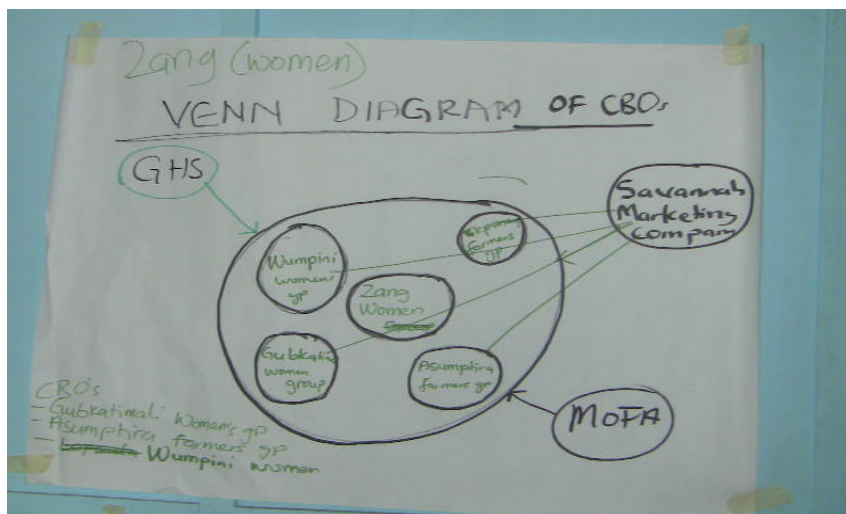 Zang (women)
VENN DIAGRAM OF CBOs
GHS
Savannah
Marketing
Company
farmers
gp
Wumpini
women's
gp
Zang
Women
Gubkati
women
group
Asumptira
farmers gp
MOFA
CBO's
- Gubkatimali Women's gp
- Asumptira farmers' gp
- Wumpini women